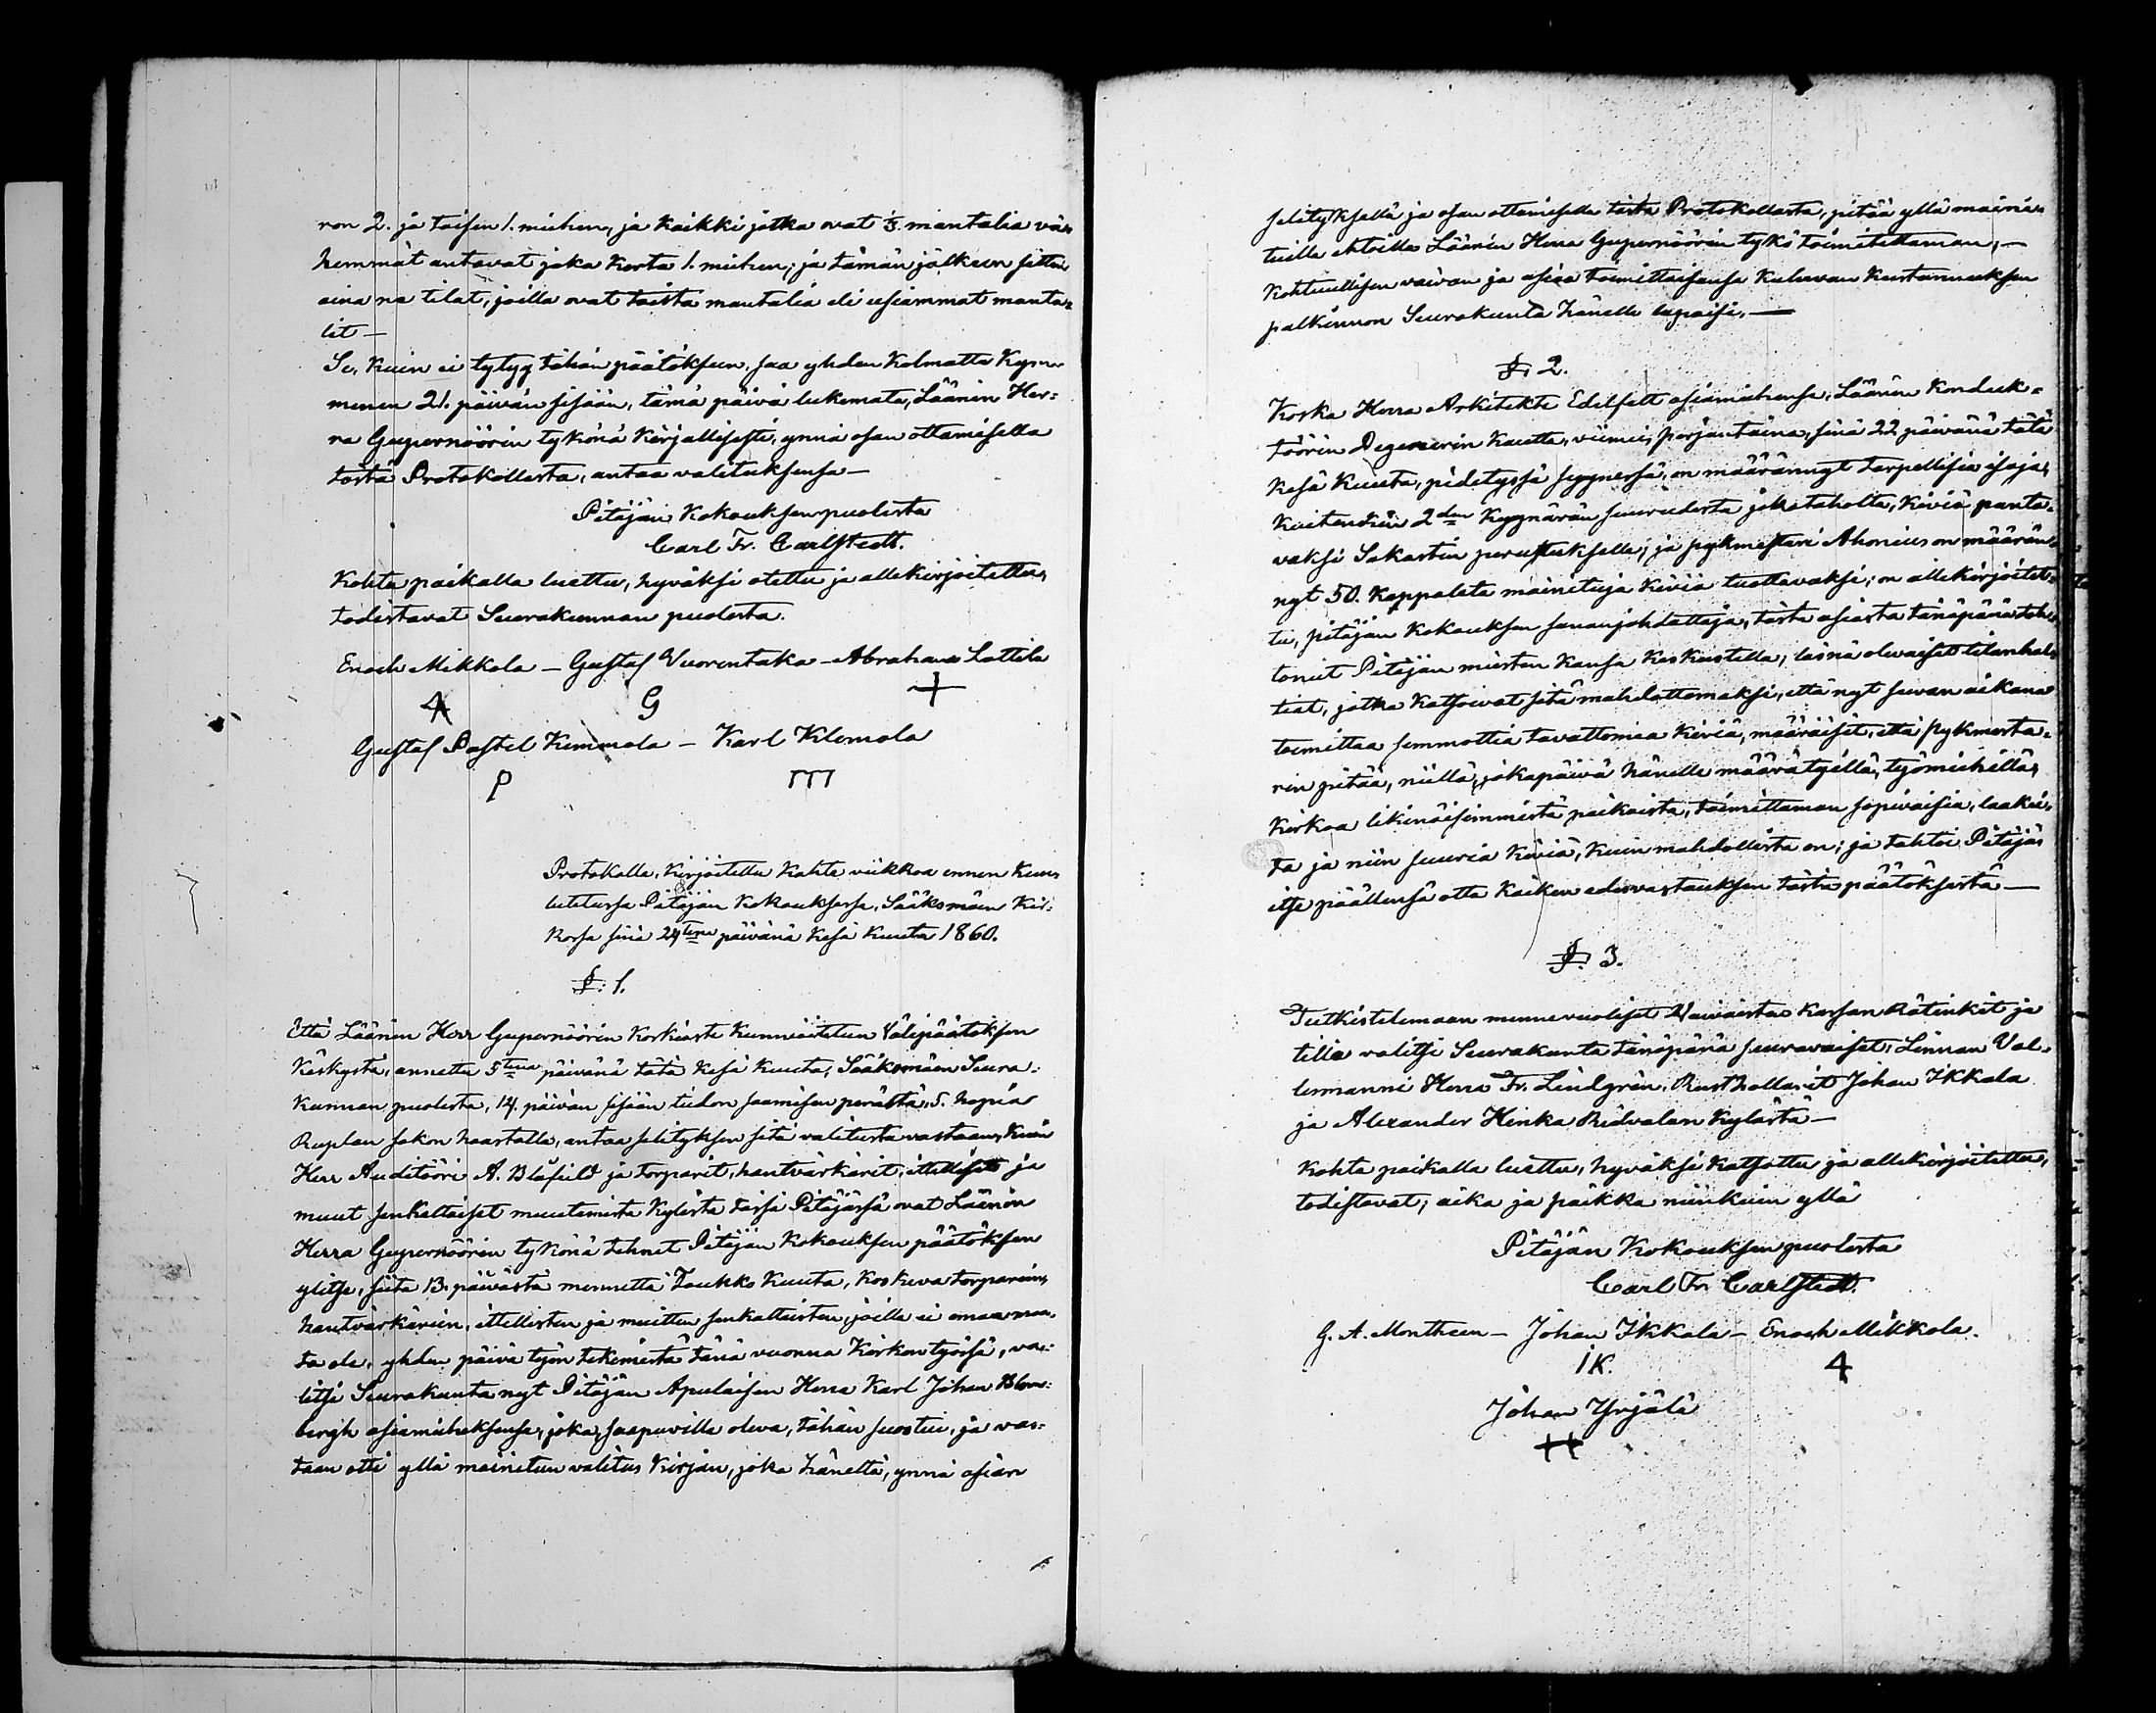 ron 2. ja toisen 1. miehen, ja kaikki jotka ovat 1/3. mantalia vä-
hemmät antavat joka kerta 1. miehen; ja tämän jälkeen sitten
aina ne tilat, joilla ovat toista mantalia eli usiammat manta-
lit —
Se, kuin ei tytyy tähän päätöksen, saa yhden kolmatta kym-
menen 21. päivän sisään, tämä päivä lukemata, Läänin Her-
ra Guvernöörin tykönä kirjallisesti, ynnä osan ottamisella
tästä Protokollasta, antaa valituksensa —
Pitäjän Kokouksen puolesta
Carl Fr. Carlstedt.
Kohta paikalla luettu, hyväksi otettu ja allekirjoitettu,
todistavat Seurakunnan puolesta.
Enoch Mikkola — Gustaf Vuorentaka — Abraham Lottila
4 G +
Gustaf Pastel Kemmola — Karl Klemola
P m
Protokolla, kirjoitettu kahta viikkoa ennen kuu-
lutetussa Pitäjän Kokouksessa, Sääksmäen Kir-
kossa sinä 24tenä päivänä Kesä Kuuta 1860.
§. 1.
Että Läänin Herr Guvernöörin korkiasti kunnioitetun Välipäätöksen
käskystä, annettu 5tenä päivänä tätä Kesä Kuuta, Sääksmäen Seura-
kunnan puolesta, 14. päivän sisään tiedon saamisen perästä, 5. hopia
Ruplan sakon haastolla, antaa selityksen sitä valitusta vastaan, kuin
Herr Auditööri A. Blåfield ja torparit, hantvärkärit, ittelliset ja
muut senkaltaiset muutamista kylistä tässä Pitäjässä ovat Läänin
Herra Guvernöörin tykönä tehnet Pitäjän Kokouksen päätöksen
ylitse, siitä 13. päivästä mennettä Toukko Kuuta, koskeva torparein,
hantvärkärein, ittellisten ja muitten senkaltaisten, joilla ei omaa maa-
ta ole, yhden päivä työn tekemistä tänä vuonna Kirkon työssä, va-
litsi Seurakunta nyt Pitäjän Apulaisen Herra Karl Johan Blom-
bergh asiamieheksensä, joka, saapuvilla oleva, tähän suostui, ja vas-
taan otti yllä mainitun valitus kirjan, joka häneltä, ynnä asian
selityksellä ja osan ottamisella tästä Protokollasta, pitää yllä maini-
tuilla ehtoilla Läänin Herra Guvernöörin tykö toimitettaman, —
Kohtuullisen vaivan ja asiaa toimittaisansa kuluvan kustannuksen
palkinnon Seurakunta hänelle lupaisi. —
§. 2.
Koska Herra Arkitekti Edelfelt asiamiehensä, Läänin Konduk-
töörin Degenerin kautta, viimeis perjantaina, sinä 22 päivänä tätä
Kesä Kuuta, pidetyssä synnessä, on määrännyt tarpellisia isoja,
kuitenkin 2den kyynärän suurudesta joka taholta, kiviä panta-
vaksi Sakastin perustukselle; ja pykmestari Ahonius on määrän-
nyt 50. kappaleta mainituja kiviä tuottavaksi; on allekirjoitet-
tu, pitäjän Kokouksen sananjohdattaja, tästä asiasta tänäpänä tah-
tonut Pitäjän miesten kansa keskustella, läsnä olevaiset tilanhal-
tiat, jotka katsoivat sitä mahdottomaksi, että nyt suvan aikana
toimittaa semmottia tavattomia kiviä, määräisit, että pykmesta-
rin pitää, niillä, jokapäivä hänelle määrätyillä, työmiehillä,
kirkoa likinäisimmistä paikoista, toimittaman sopivaisia, laakei-
ta ja niin suuria kiviä, kuin mahdollista on; ja tahtoi Pitäjäs
itse päällensä otta kaiken edesvastauksen tästä päätöksestä —
§. 3.
Tutkistelemaan mennevuoliset Vaivaisten Kassan Rätinkit ja
tilia valitsi Seurakunta tänäpänä seuravaiset: Linnan Val-
lesmanni Herra Fr. Lindgrén, Rusthollarit Johan Ikkala
ja Alexander Heinka Ridvalan kylästä —
Kohta paikalla luettu, hyväksi katsottu ja allekirjoitettu,
todistavat; aika ja paikka niinkuin yllä
Pitäjän Kokouksen puolesta
Carl Fr. Carlstedt.
G. A. Montheen — Johan Ikkala — Enoch Mikkola.
IK. 4
Johan Yrjälä
++